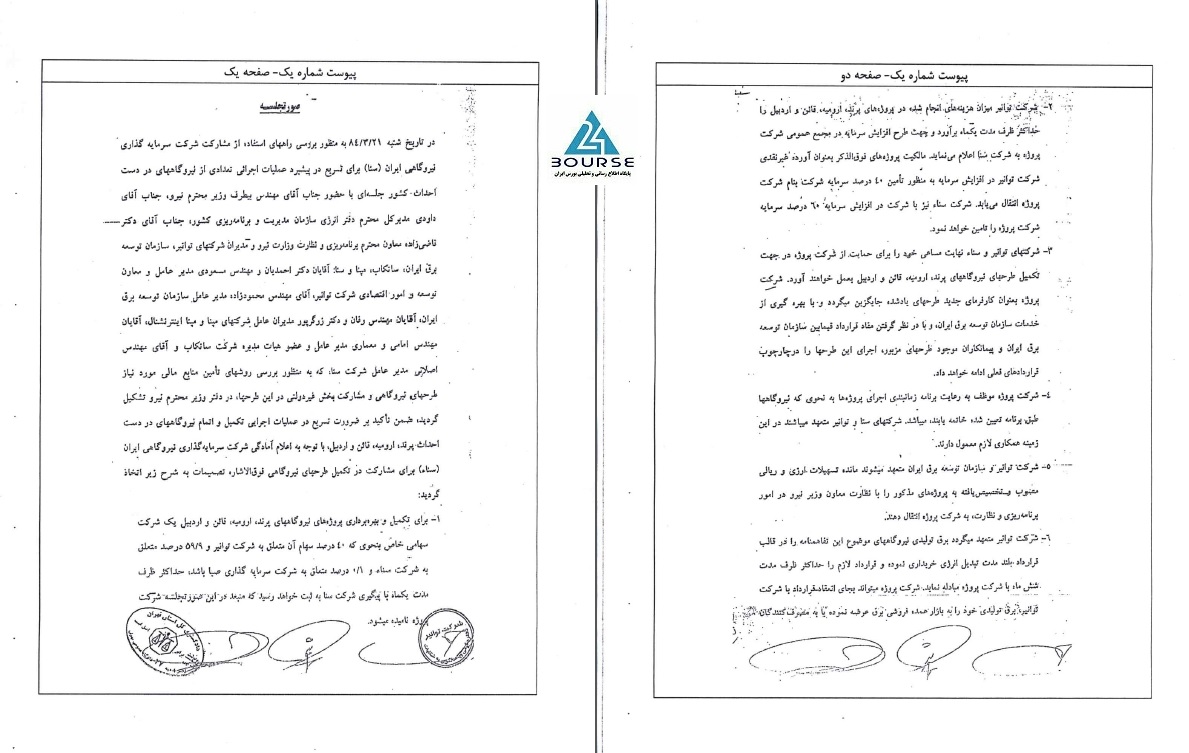 پیوست شماره یک- صفحه یک
صورتجلسه
در تاریخ شنبه ۸۴/۳/۲۱ به منظور بررسی راههای استفاده از مشارکت شرکت سرمایه گذاری
نیروگاهی ایران (سنا) برای تسریع در پیشبرد عملیات اجرائی تعدادی از نیروگاههای در دست
احداث کشور جلسه‌ای با حضور جناب آقای مهندس بیطرف وزیر محترم نیرو، جناب آقای
داودی مدیرکل محترم دفتر انرژی سازمان مدیریت و برنامه‌ریزی کشور، جناب آقای دکتر
قاضی‌زاده معاون محترم برنامه‌ریزی و نظارت وزارت نیرو و مدیران شرکتهای توانیر، سازمان توسعه
برق ایران، ساتکاب، مپنا و سنا: آقایان دکتر احمدیان و مهندس مسعودی مدیر عامل و معاون
توسعه و امور اقتصادی شرکت توانیر، آقای مهندس محمودزاده مدیر عامل سازمان توسعه برق
ایران، آقایان مهندس وفان و دکتر زرگرپور مدیران عامل شرکتهای مپنا و مپنا اینترنشنال، آقایان
مهندس امامی و معماری مدیر عامل و عضو هیات مدیره شرکت ساتکاب و آقای مهندس
اصلانی مدیر عامل شرکت سنا، که به منظور بررسی روشهای تأمین منابع مالی مورد نیاز
طرحهای نیروگاهی و مشارکت بخش غیردولتی در این طرحها، در دفتر وزیر محترم نیرو تشکیل
گردید، ضمن تأکید بر ضرورت تسریع در عملیات اجرایی تکمیل و اتمام نیروگاههای در دست
احداث پرند، ارومیه، قائن و اردبیل، با توجه به اعلام آمادگی شرکت سرمایه‌گذاری نیروگاهی ایران
(سناء) برای مشارکت در تکمیل طرحهای نیروگاهی فوق‌الاشاره تصمیمات به شرح زیر اتخاذ
گردید:
۱- برای تکمیل و بهره‌برداری پروژه‌های نیروگاههای پرند، ارومیه، قائن و اردبیل یک شرکت
سهامی خاص بنحوی که ۴۰ درصد سهام آن متعلق به شرکت توانیر و ۵۹/۹ درصد متعلق
به شرکت سناء و ۰/۱ درصد متعلق به شرکت سرمایه گذاری صبا باشد، حداکثر ظرف
مدت یکماه با پیگیری شرکت سنا به ثبت خواهد رسید که منبعد در این صورتجلسه شرکت
پروژه نامیده میشود.
24
BOURSE
پایگاه اطلاع رسانی و تحلیلی بورس ایران
پیوست شماره یک- صفحه دو
۲- شرکت توانیر میزان هزینه‌های انجام شده در پروژه‌های پرند، ارومیه، قائن و اردبیل را
حداکثر ظرف مدت یکماه برآورد و جهت طرح افزایش سرمایه در مجمع عمومی شرکت
پروژه به شرکت سنا اعلام می‌نماید. مالکیت پروژه‌های فوق‌الذکر بعنوان آورده غیرنقدی
شرکت توانیر در افزایش سرمایه به منظور تأمین ۴۰ درصد سرمایه شرکت بنام شرکت
پروژه انتقال می‌یابد. شرکت سناء نیز با شرکت در افزایش سرمایه ۶۰ درصد سرمایه
شرکت پروژه را تامین خواهد نمود.
۳- شرکتهای توانیر و سناء نهایت مساعی خود را برای حمایت از شرکت پروژه در جهت
تکمیل طرحهای نیروگاههای پرند، ارومیه، قائن و اردبیل بعمل خواهند آورد. شرکت
پروژه بعنوان کارفرمای جدید طرحهای یادشده جایگزین میگردد و با بهره گیری از
خدمات سازمان توسعه برق ایران، و با در نظر گرفتن مفاد قرارداد فیمابین سازمان توسعه
برق ایران و پیمانکاران موجود طرحهای مزبور، اجرای این طرحها را درچارچوب
قراردادهای فعلی ادامه خواهد داد.
۴- شرکت پروژه موظف به رعایت برنامه زمانبندی اجرای پروژه‌ها به نحوی که نیروگاهها
طبق برنامه تعیین شده خاتمه یابند، میباشد. شرکتهای سنا و توانیر متعهد میباشند در این
زمینه همکاری لازم معمول دارند.
۵- شرکت توانیر و سازمان توسعه برق ایران متعهد میشوند مانده تسهیلات ارزی و ریالی
مصوب و تخصیص‌یافته به پروژه‌های مذکور را با نظارت معاون وزیر نیرو در امور
برنامه‌ریزی و نظارت، به شرکت پروژه انتقال دهند.
۶- شرکت توانیر متعهد میگردد برق تولیدی نیروگاههای موضوع این تفاهمنامه را در قالب
قرارداد بلند مدت تبدیل انرژی خریداری نموده و قرارداد لازم را حداکثر ظرف مدت
شش ماه با شرکت پروژه مبادله نماید. شرکت پروژه میتواند بجای انعقاد قرارداد با شرکت
توانیر، برق تولیدی خود را به بازار عمده فروشی برق عرضه نموده یا به مصرف‌کنندگان